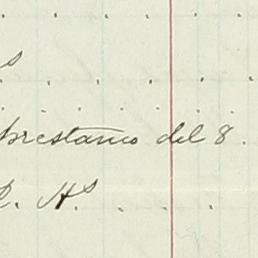 s
prestamo del 8.
R. Hs